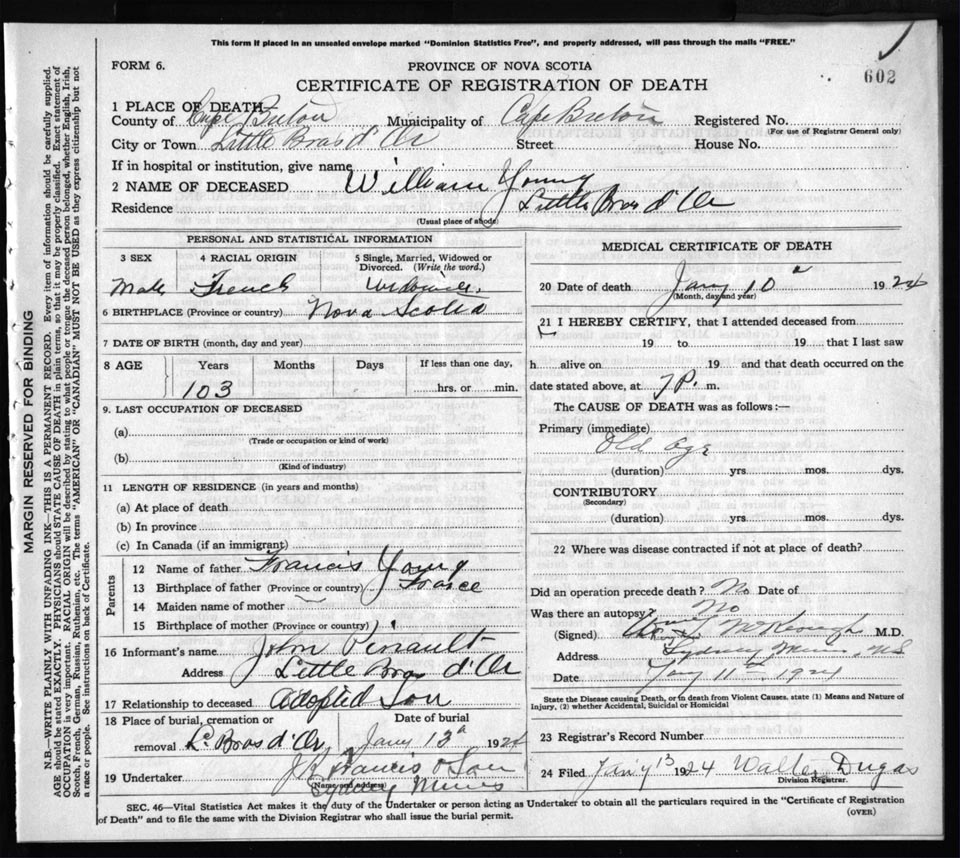 This form if placed in an unsealed envelope marked "Dominion Statistics Free", and properly addressed, will pass through the mails "FREE."
FORM 6.
PROVINCE OF NOVA SCOTIA
602
CERTIFICATE OF REGISTRATION OF DEATH
1 PLACE OF DEATH
County of Cape Breton Municipality of Cape Breton Registered No.
(For use of Registrar General only)
City or Town Little Bras d'Or Street House No.
If in hospital or institution, give name
2 NAME OF DECEASED William Young
Residence Little Bras d'Or
(Usual place of abode)
PERSONAL AND STATISTICAL INFORMATION
3 SEX 4 RACIAL ORIGIN 5 Single, Married, Widowed or Divorced. (Write the word.)
Male French Widower
6 BIRTHPLACE (Province or country) Nova Scotia
7 DATE OF BIRTH (month, day and year)
8 AGE Years Months Days If less than one day,
103 hrs. or min.
9. LAST OCCUPATION OF DECEASED
(a)
(Trade or occupation or kind of work)
(b)
(Kind of industry)
11 LENGTH OF RESIDENCE (in years and months)
(a) At place of death
(b) In province
(c) In Canada (if an immigrant)
Parents
12 Name of father Francis Young
13 Birthplace of father (Province or country) France
14 Maiden name of mother
15 Birthplace of mother (Province or country)
16 Informant's name John Pirault
Address Little Bras d'Or
17 Relationship to deceased Adopted Son
18 Place of burial, cremation or removal L. Bras d'Or
Date of burial
Jany 13th 1924
19 Undertaker J. Francis & Son
(Name and address)
Sydney Mines
MEDICAL CERTIFICATE OF DEATH
20 Date of death Jany 10 1924
(Month, day and year)
21 I HEREBY CERTIFY, that I attended deceased from
19 to 19 that I last saw
h alive on 19 and that death occurred on the
date stated above, at 7 P. m.
The CAUSE OF DEATH was as follows:—
Primary (immediate)
Old age
(duration) yrs. mos. dys.
CONTRIBUTORY
(Secondary)
(duration) yrs. mos. dys.
22 Where was disease contracted if not at place of death?
Did an operation precede death? No Date of
Was there an autopsy? No
(Signed) McKeough M.D.
Address Sydney Mines, N.S
Date Jany 11th 1924
State the Disease causing Death, or in death from Violent Causes, state (1) Means and Nature of Injury, (2) whether Accidental, Suicidal or Homicidal
23 Registrar's Record Number
24 Filed Jan'y 13 1924 Walter Dugas
Division Registrar.
SEC. 46—Vital Statistics Act makes it the duty of the Undertaker or person acting as Undertaker to obtain all the particulars required in the "Certificate of Registration
of Death" and to file the same with the Division Registrar who shall issue the burial permit.
(OVER)
MARGIN RESERVED FOR BINDING
N.B.—WRITE PLAINLY WITH UNFADING INK—THIS IS A PERMANENT RECORD. Every item of information should be carefully supplied.
AGE should be stated EXACTLY. PHYSICIANS should STATE CAUSE OF DEATH in plain terms, so that it may be properly classified. Exact statement of
OCCUPATION is very important. RACIAL ORIGIN will be described by stating to what people or tongue the deceased person belonged, whether English, Irish,
Scotch, French, German, Russian, Ruthenian, etc. The terms "AMERICAN" OR "CANADIAN" MUST NOT BE USED as they express citizenship but not
a race or people. See instructions on back of Certificate.